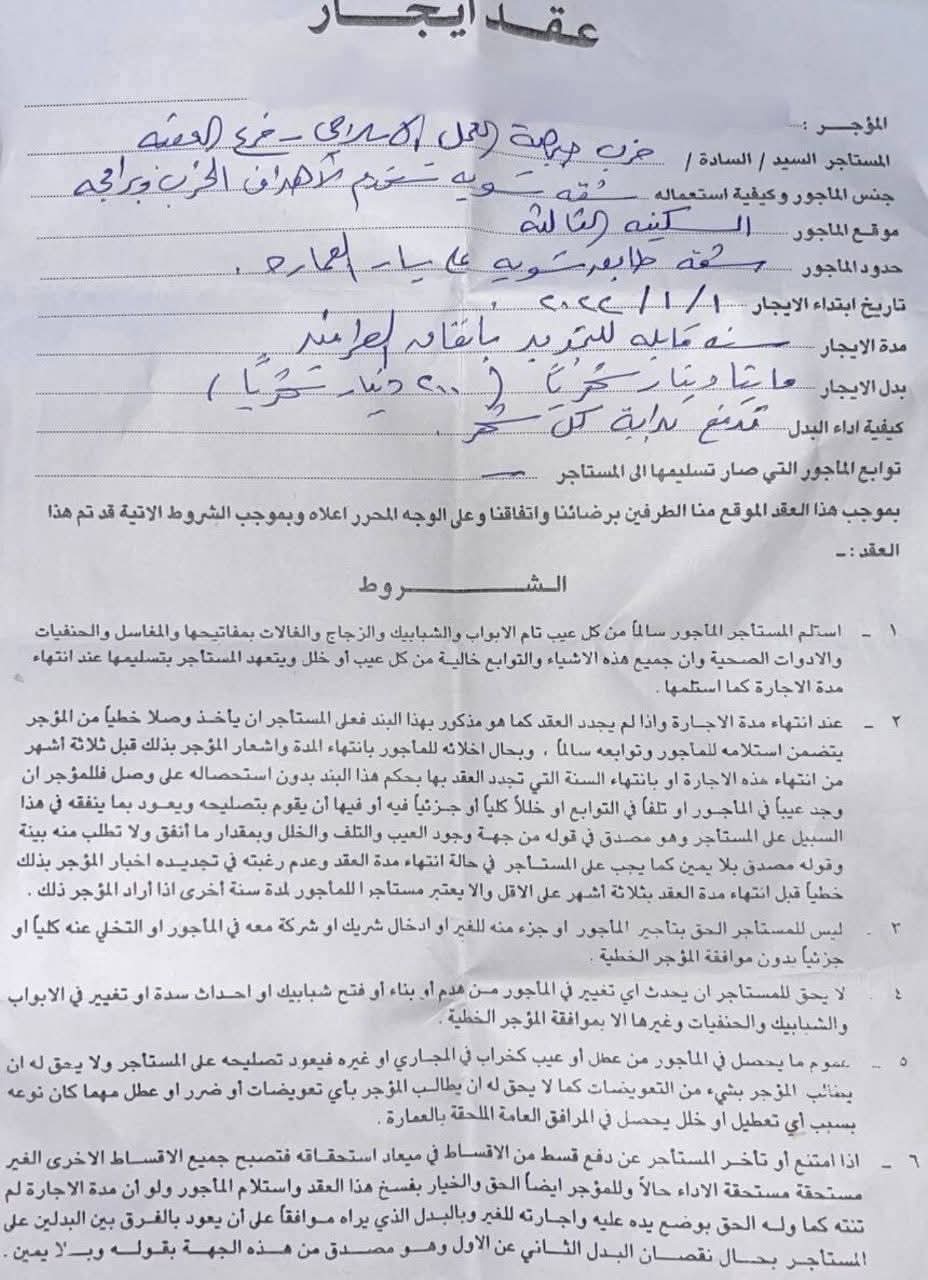 عقد ايجار
المؤجر :
المستاجر السيد / السادة / حزب جبهة العمل الاسلامي - فرع العقبه
جنس المأجور وكيفية استعماله شقه تسويه تستخدم لأهداف الحزب وبرامجه
موقع المأجور السكنيه الثالثة
حدود المأجور شقه طابق تسويه على يسار العماره .
تاريخ ابتداء الايجار ١ / ١ / ٢٠٢٢ .
مدة الايجار سنه قابله للتجديد باتفاق الطرفين
بدل الايجار مايتا دينار شهرياً ( ٢٠٠ دينار شهرياً )
كيفية اداء البدل تدفع بداية كل شهر .
توابع المأجور التي صار تسليمها الى المستاجر —
بموجب هذا العقد الموقع منا الطرفين برضائنا واتفاقنا وعلى الوجه المحرر اعلاه وبموجب الشروط الاتية قد تم هذا
العقد : ـ
الشروط
١ ـ استلم المستأجر المأجور سالماً من كل عيب تام الابواب والشبابيك والزجاج والغالات بمفاتيحها والمغاسل والحنفيات
والادوات الصحية وان جميع هذه الاشياء والتوابع خالية من كل عيب أو خلل ويتعهد المستأجر بتسليمها عند انتهاء
مدة الاجارة كما استلمها .
٢ ـ عند انتهاء مدة الاجارة واذا لم يجدد العقد كما هو مذكور بهذا البند فعلى المستأجر ان يأخذ وصلا خطياً من المؤجر
يتضمن استلامه للمأجور وتوابعه سالماً ، وبحال اخلائه للمأجور بانتهاء المدة واشعار المؤجر بذلك قبل ثلاثة أشهر
من انتهاء هذه الاجارة او بانتهاء السنة التي تجدد العقد بها بحكم هذا البند بدون استحصاله على وصل فللمؤجر ان
وجد عيباً في المأجور او تلفاً في التوابع او خللاً كلياً أو جزئياً فيه او فيها أن يقوم بتصليحه ويعود بما ينفقه في هذا
السبيل على المستأجر وهو مصدق في قوله من جهة وجود العيب والتلف والخلل وبمقدار ما أنفق ولا تطلب منه بينة
وقوله مصدق بلا يمين كما يجب على المستأجر في حالة انتهاء مدة العقد وعدم رغبته في تجديده اخبار المؤجر بذلك
خطياً قبل انتهاء مدة العقد بثلاثة أشهر على الاقل والا يعتبر مستأجرا للمأجور لمدة سنة أخرى اذا أراد المؤجر ذلك .
٣ . ليس للمستأجر الحق بتأجير المأجور او جزء منه للغير او ادخال شريك او شركة معه في المأجور او التخلي عنه كلياً او
جزئياً بدون موافقة المؤجر الخطية .
٤ . لا يحق للمستأجر ان يحدث اي تغيير في المأجور من هدم أو بناء أو فتح شبابيك او احداث سدة او تغيير في الابواب
والشبابيك والحنفيات وغيرها الا بموافقة المؤجر الخطية .
٥ ـ عموم ما يحصل في المأجور من عطل أو عيب كخراب في المجاري او غيره فيعود تصليحه على المستأجر ولا يحق له ان
يطالب المؤجر بشيء من التعويضات كما لا يحق له ان يطالب المؤجر بأي تعويضات أو ضرر او عطل مهما كان نوعه
بسبب أي تعطيل أو خلل يحصل في المرافق العامة الملحقة بالعمارة .
٦ ـ اذا امتنع أو تأخر المستأجر عن دفع قسط من الاقساط في ميعاد استحقاقه فتصبح جميع الاقساط الاخرى الغير
مستحقة مستحقة الاداء حالاً وللمؤجر ايضاً الحق والخيار بفسخ هذا العقد واستلام المأجور ولو أن مدة الاجارة لم
تنته كما وله الحق بوضع يده عليه واجارته للغير وبالبدل الذي يراه موافقاً على أن يعود بالفرق بين البدلين على
المستأجر بحال نقصان البدل الثاني عن الاول وهو مصدق من هذه الجهة بقوله وبلا يمين .